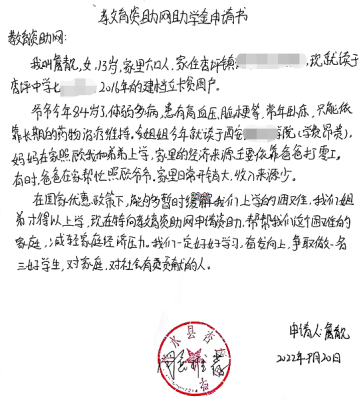 教育资助网助学金申请书
教育资助网:
我叫詹靓,女,13岁,家里六口人,家住吉坪镇 ,现就读于
吉坪中学七 2016年的建档立卡贫困户。
爷爷今年84岁了,体弱多病,患有高血压、脑梗等,常年卧床,只能依
靠长期的药物治疗维持。我姐姐今年就读于西安 学院(学费昂贵),
妈妈在家照顾我和弟弟上学,家里的经济来源主要依靠爸爸打零工。
有时,爸爸在家帮忙照顾爷爷,家里日常开销大,收入来源少。
在国家优惠政策下,能够暂时缓解我们上学的困难,我们姐
弟才得以上学,现在特向教育资助网申请资助,帮帮我们这个困难的
家庭,减轻家庭经济压力。我们一定好好学习,奋发向上,争取做一名
三好学生,对家庭,对社会有贡献的人。
申请人:詹靓
2022年9月20日